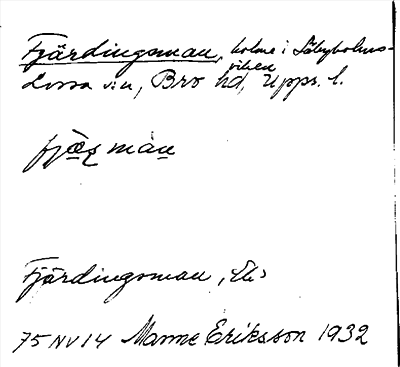 Fjärdingsman, holme i Säbyholms-
viken
Lossa sn, Bro hd, Upps. l.
fjæṣ màn
Fjärdingsman,
75 NV 14 Manne Eriksson 1932